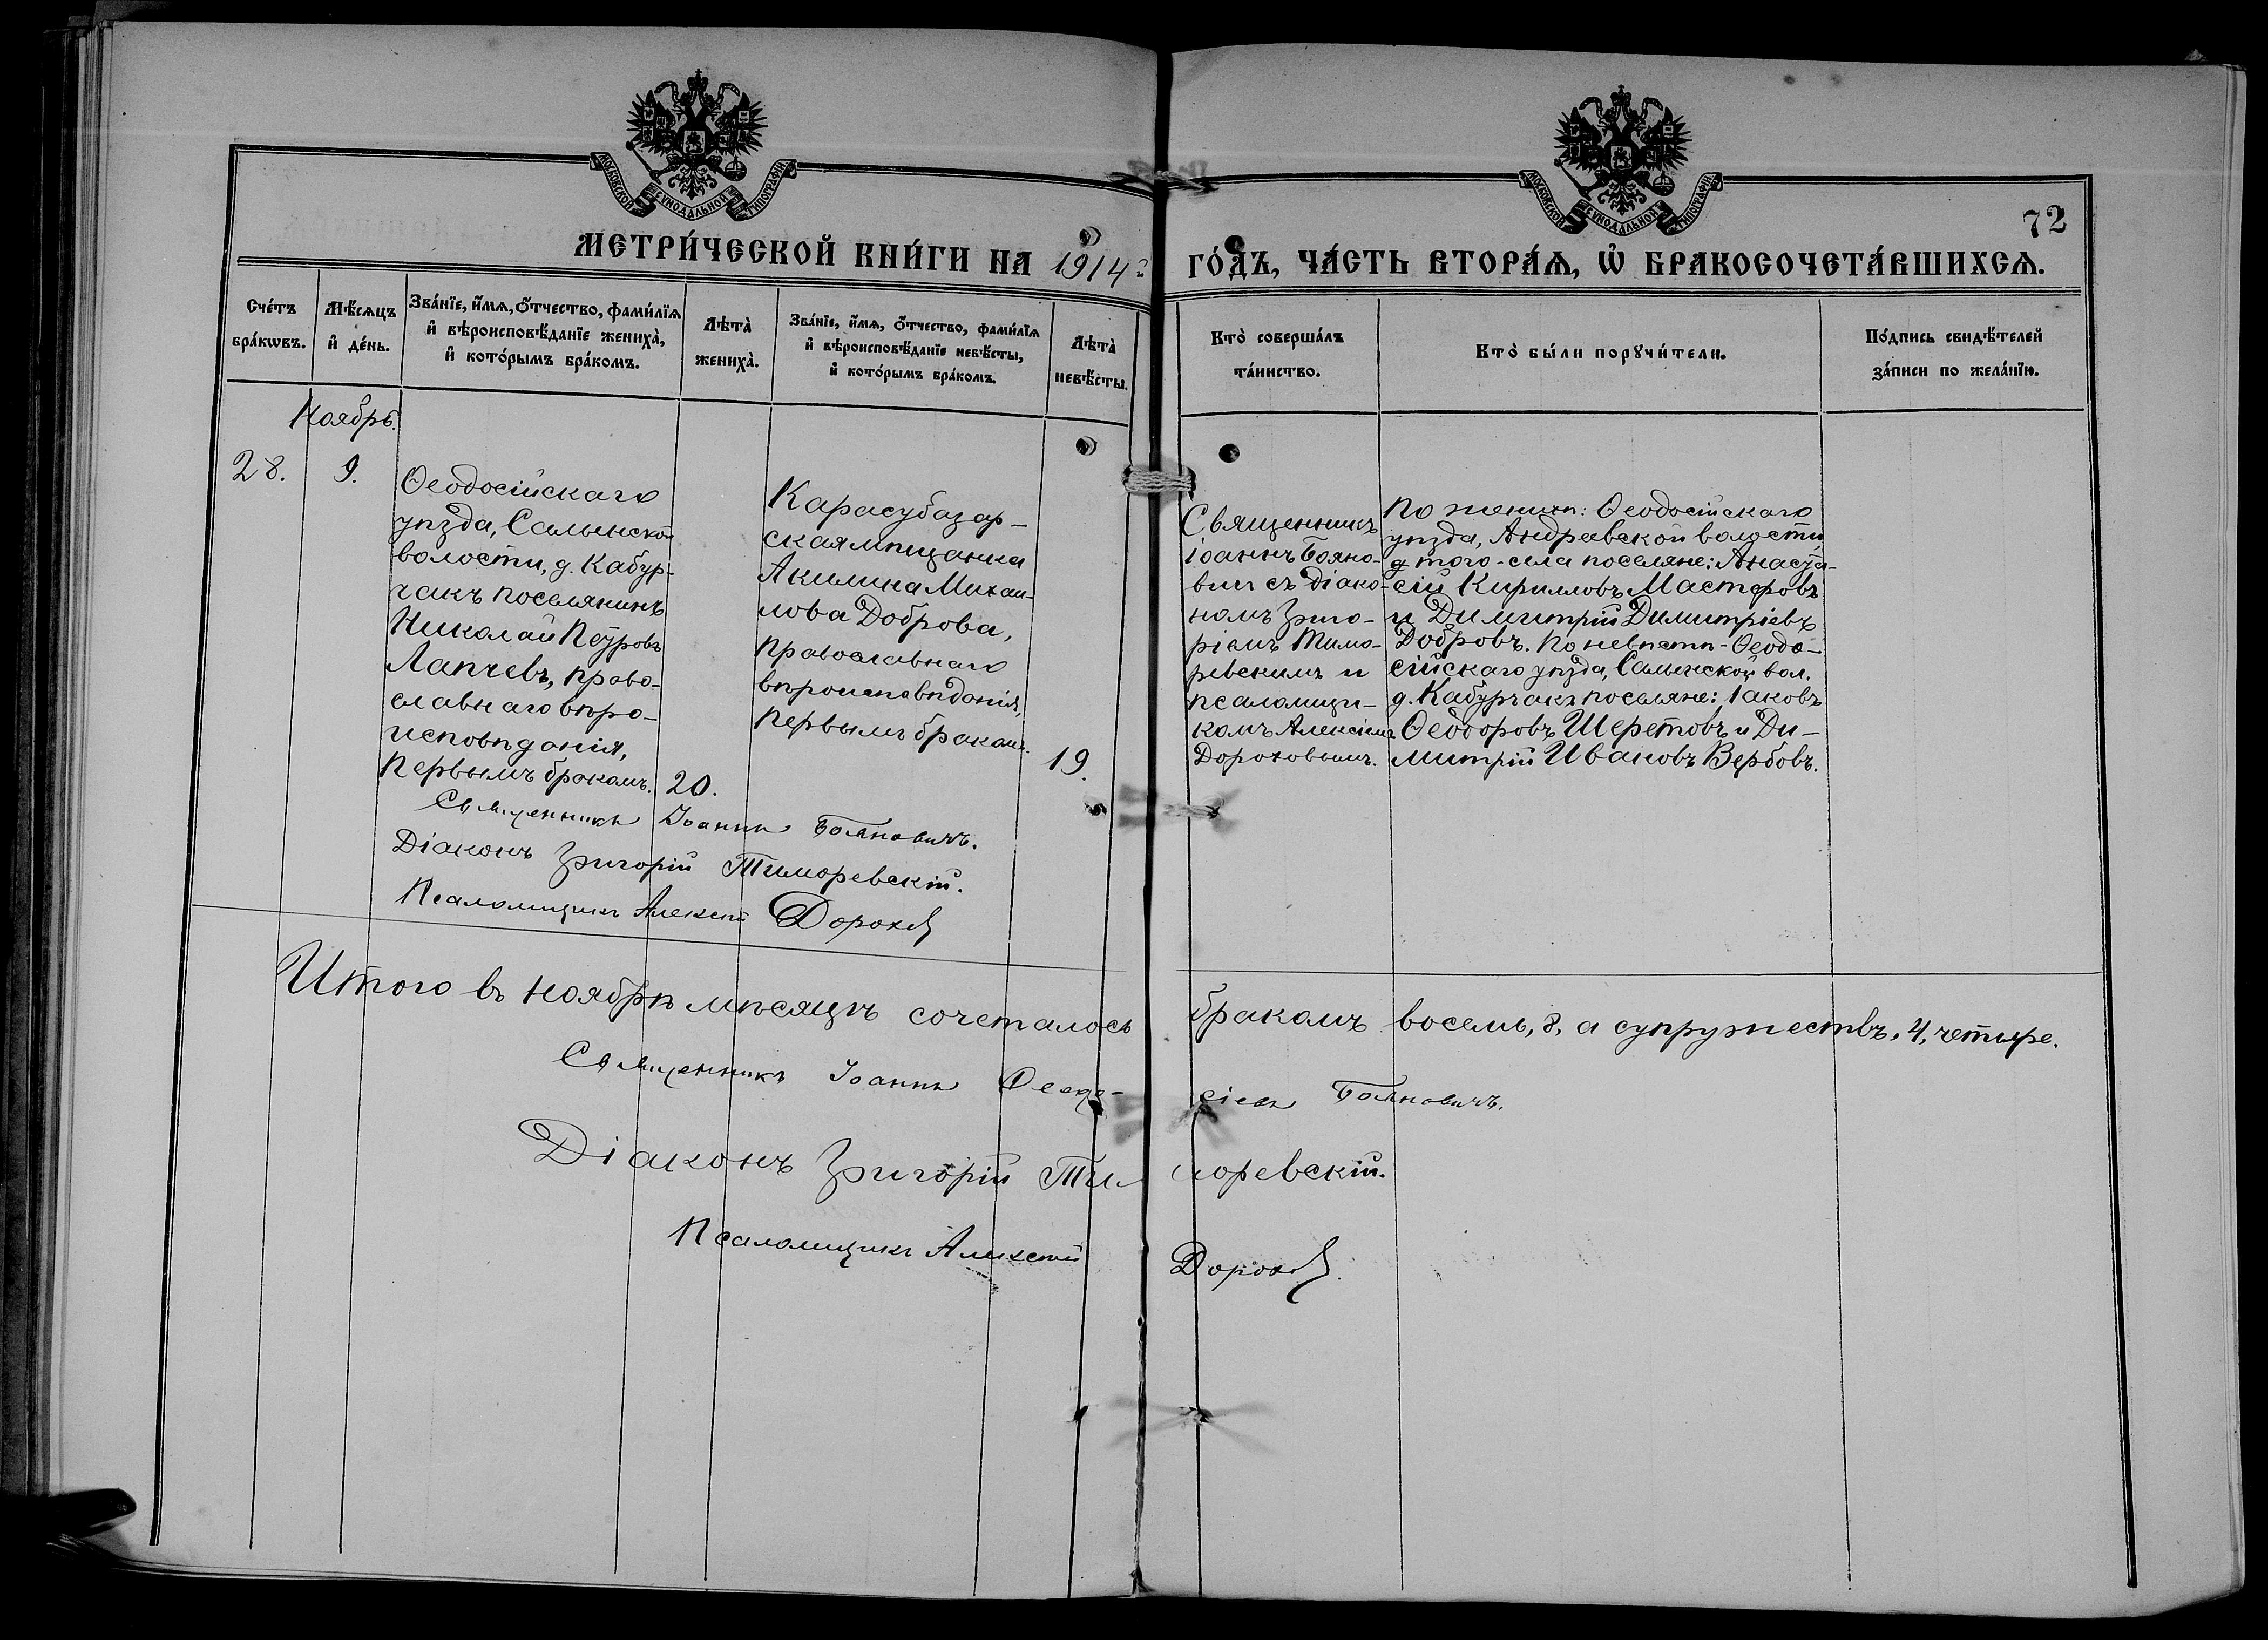 МОСКОВСКОЙ СѴНОДАЛЬНОЙ ТИПОГРАФІИ
МОСКОВСКОЙ СѴНОДАЛЬНОЙ ТИПОГРАФІИ
72
МЕТРИ́ЧЕСКОЙ КНИ́ГИ НА 1914й ГО́ДЪ, ЧА́СТЬ ВТОРА́Ѧ, Ѡ҆ БРАКОСОЧЕТА́ВШИХСѦ.
Сче́тъ
бра́кѡвъ.
Мѣ́сѧцъ
и҆ де́нь.
Зва́нїе, и҆́мѧ, ѻ҆́тчество, фами́лїѧ
и҆ вѣроисповѣ́данїе жениха̀,
и҆ кото́рымъ бра́комъ.
Лѣта̀
жениха̀.
Зва́нїе, и҆́мѧ, ѻ҆́тчество, фами́лїѧ
и҆ вѣроисповѣ́данїе невѣ́сты,
и҆ кото́рымъ бра́комъ.
Лѣта̀
невѣ́сты.
Кто̀ соверша́лъ
та́инство.
Кто̀ бы́ли порꙋчи́тели.
По́дпись свидѣ́телей
за́писи по жела́нїю.
Ноябрь.
28.
9.
Ѳеодосійскаго
уѣзда, Салынской
волости, д. Кабур-
чакъ поселянинъ
Николай Петровъ
Лапчевъ, право-
славнаго вѣро-
исповѣданія,
первымъ бракомъ.
20.
Карасубазар-
ская мѣщанка
Акилина Михаи-
лова Доброва,
православнаго
вѣроисповѣданія,
первымъ бракомъ.
19.
Священникъ
Іоаннъ Бояно-
вичъ съ діако-
номъ Григо-
ріемъ Тимо-
ревскимъ и
псаломщи-
комъ Алексіемъ
Дороховымъ.
По женихѣ: Ѳеодосійскаго
уѣзда, Андреевской волости,
того-села поселяне: Анаста-
сій Кирилловъ Мастеровъ
и Димитрій Димитріевъ
Добровъ. По невѣстѣ - Ѳеодо-
сійскаго уѣзда, Салынской вол.
д. Кабурчакъ поселяне: Іаковъ
Ѳеодоровъ Шеретовъ и Ди-
митрій Ивановъ Вербовъ.
Священникъ Іоаннъ Бояновичъ.
Діаконъ Григорій Тиморевскій.
Псаломщикъ Алексѣй Дороховъ
Итого въ ноябрѣ мѣсяцѣ сочеталось бракомъ восемь, 8, а супружествъ, 4, четыре.
Священникъ Іоаннъ Ѳеодо-сіевъ Бояновичъ.
Діаконъ Григорій Тиморевскій.
Псаломщикъ Алексѣй Дороховъ.